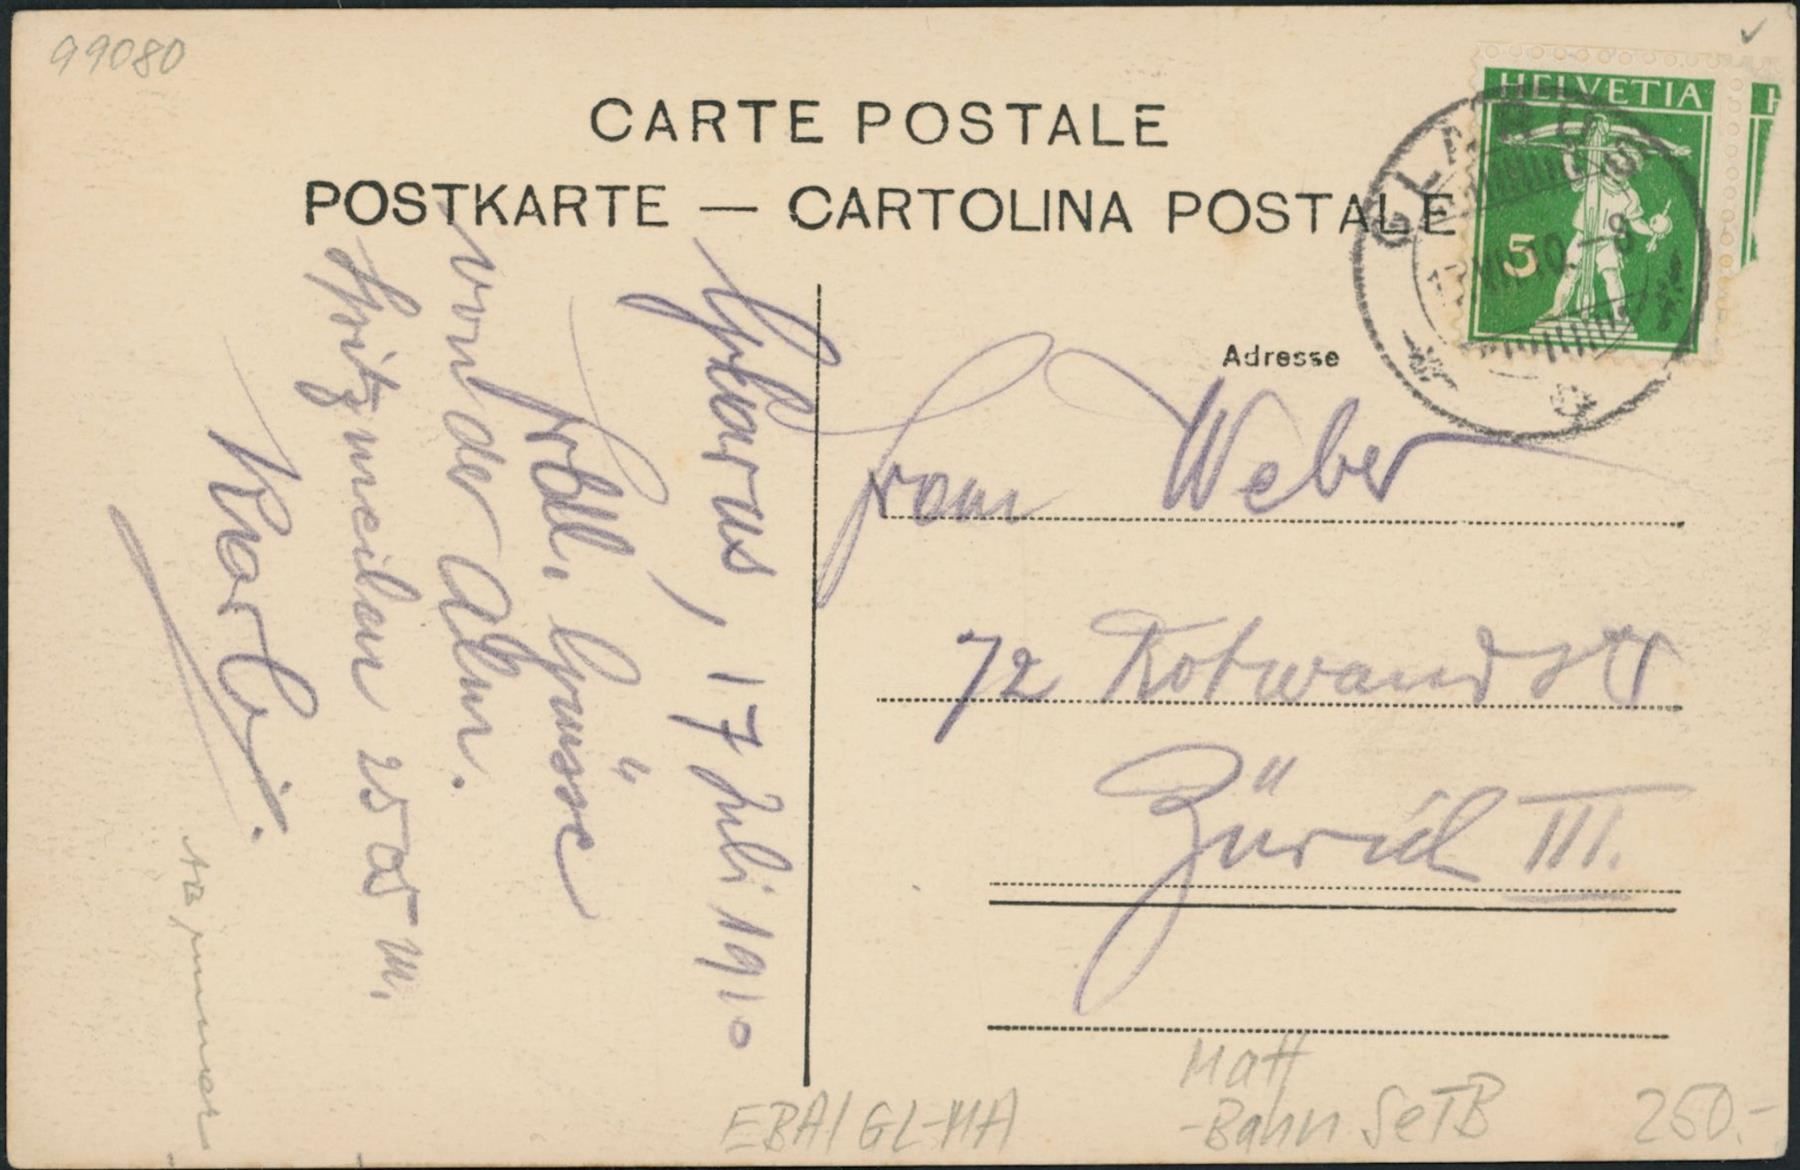 99080
CARTE POSTALE
POSTKARTE — CARTOLINA POSTALE
HELVETIA
5
GLARUS
Adresse
Frau Weber
72 Rotwandstr
Zürich III.
Glarus, 17 Juli 1910
Frdl. Grüsse
von der Alm.
Spitzmeilen 2505 m.
Karli.
Matt
EBA/GL-MA
-Bahn SeTB
250.-